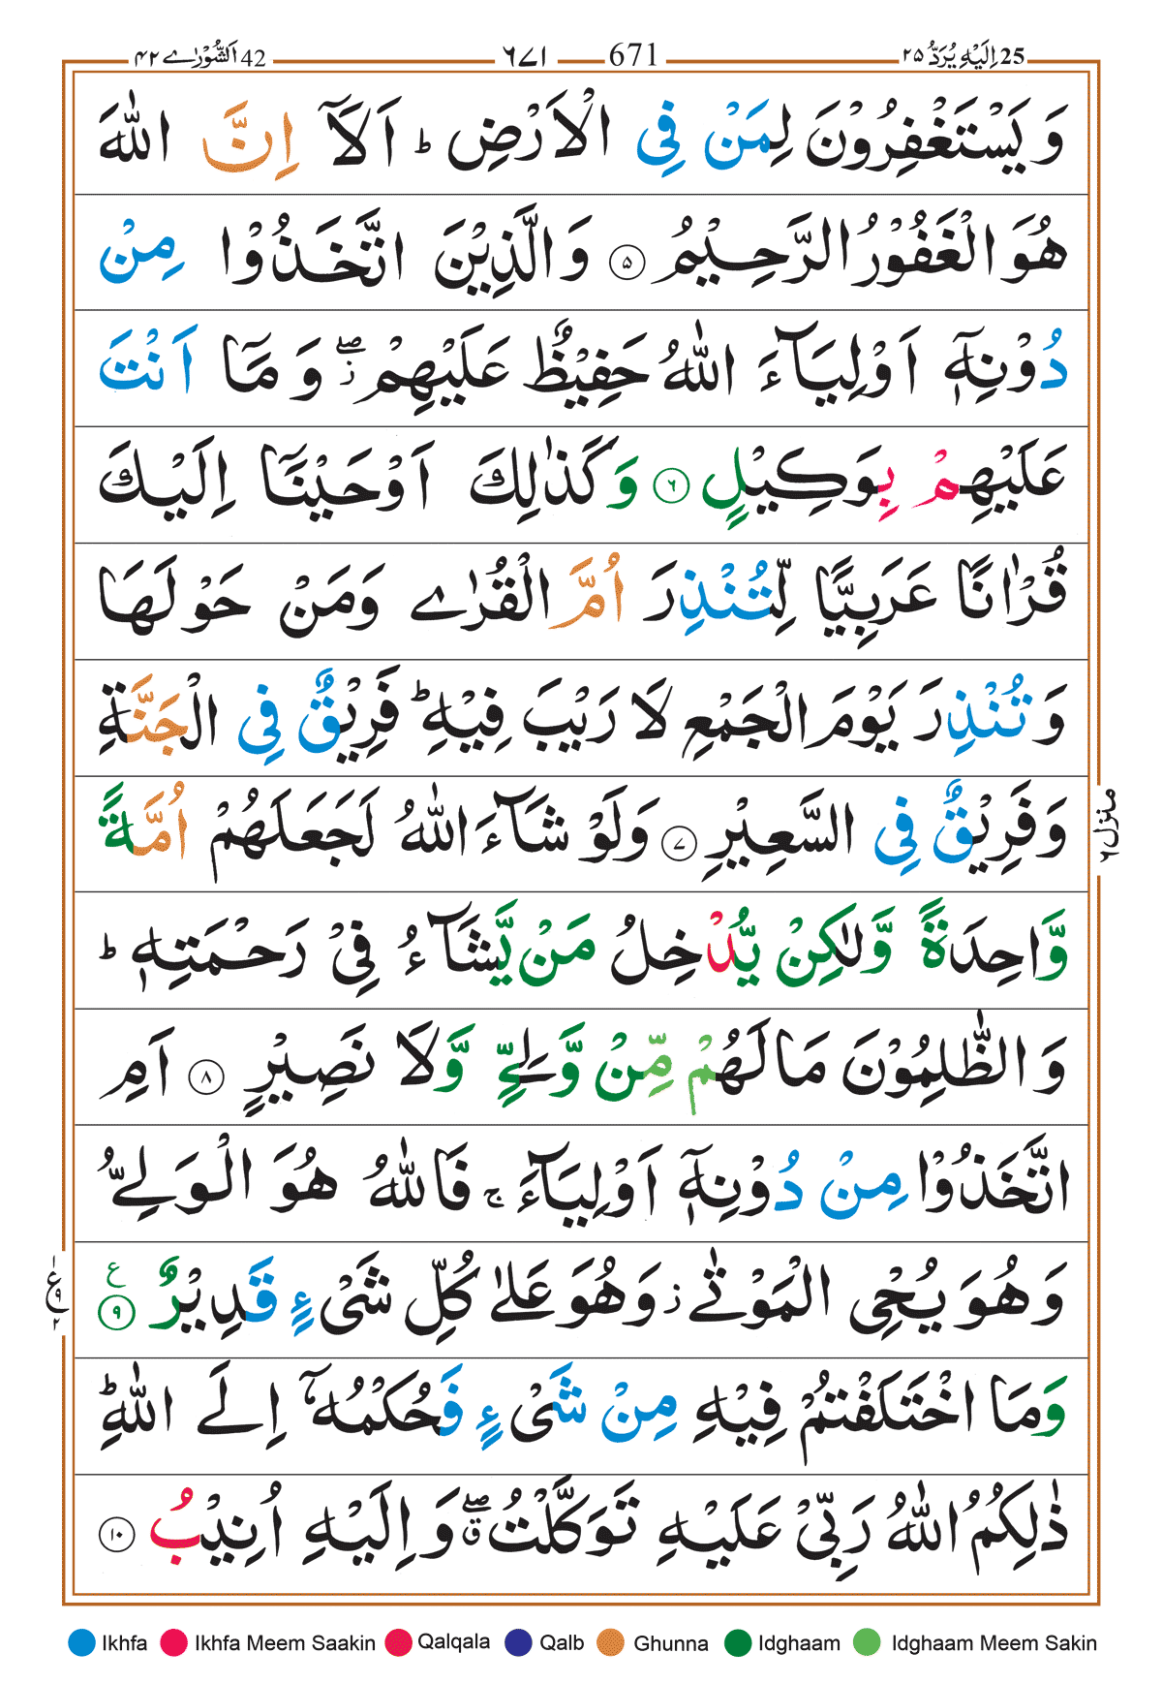 25 اِلَيْهِ يُرَدُّ ٢٥ 671 ٦٧١ 42 اَلشُّوْرٰى ٤٢
وَيَسْتَغْفِرُوْنَ لِمَنْ فِى الْاَرْضِ ؕ اَلَاۤ اِنَّ اللّٰهَ
هُوَ الْغَفُوْرُ الرَّحِيْمُ ۝٥ وَالَّذِيْنَ اتَّخَذُوْا مِنْ
دُوْنِهٖۤ اَوْلِيَآءَ اللّٰهُ حَفِيْظٌ عَلَيْهِمْ ۖ ز وَمَاۤ اَنْتَ
عَلَيْهِمْ بِوَكِيْلٍ ۝٦ وَكَذٰلِكَ اَوْحَيْنَاۤ اِلَيْكَ
قُرْاٰنًا عَرَبِيًّا لِّتُنْذِرَ اُمَّ الْقُرٰى وَمَنْ حَوْلَهَا
وَتُنْذِرَ يَوْمَ الْجَمْعِ لَا رَيْبَ فِيْهِ ؕ فَرِيْقٌ فِى الْجَنَّةِ
وَفَرِيْقٌ فِى السَّعِيْرِ ۝٧ وَلَوْ شَآءَ اللّٰهُ لَجَعَلَهُمْ اُمَّةً
وَّاحِدَةً وَّلٰكِنْ يُّدْخِلُ مَنْ يَّشَآءُ فِىْ رَحْمَتِهٖ ؕ
وَالظّٰلِمُوْنَ مَا لَهُمْ مِّنْ وَّلِىٍّ وَّلَا نَصِيْرٍ ۝٨ اَمِ
اتَّخَذُوْا مِنْ دُوْنِهٖۤ اَوْلِيَآءَ ۚ فَاللّٰهُ هُوَ الْوَلِىُّ
وَهُوَ يُحْىِ الْمَوْتٰى ز وَهُوَ عَلٰى كُلِّ شَىْءٍ قَدِيْرٌ ۝٩ ع
وَمَا اخْتَلَفْتُمْ فِيْهِ مِنْ شَىْءٍ فَحُكْمُهٗۤ اِلَى اللّٰهِ ؕ
ذٰلِكُمُ اللّٰهُ رَبِّىْ عَلَيْهِ تَوَكَّلْتُ ۖ ق وَاِلَيْهِ اُنِيْبُ ۝١٠
منزل ٦
ع ١ ٩ ٢
Ikhfa Ikhfa Meem Saakin Qalqala Qalb Ghunna Idghaam Idghaam Meem Sakin